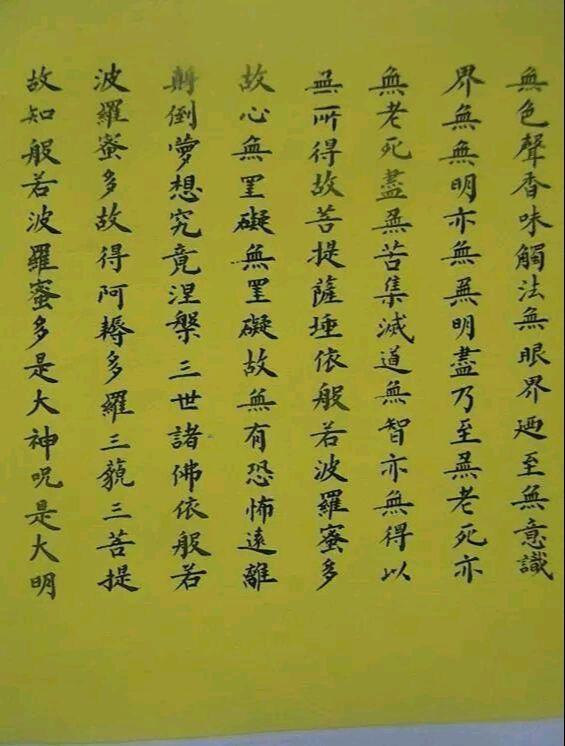 無色聲香味觸法無眼界廼至無意識
界無無明亦無無明盡乃至無老死亦
無老死盡無苦集滅道無智亦無得以
無所得故菩提薩埵依般若波羅蜜多
故心無罣礙無罣礙故無有恐怖遠離
倒夢想究竟涅槃三世諸佛依般若
波羅蜜多故得阿耨多羅三藐三菩提
故知般若波羅蜜多是大神呪是大明